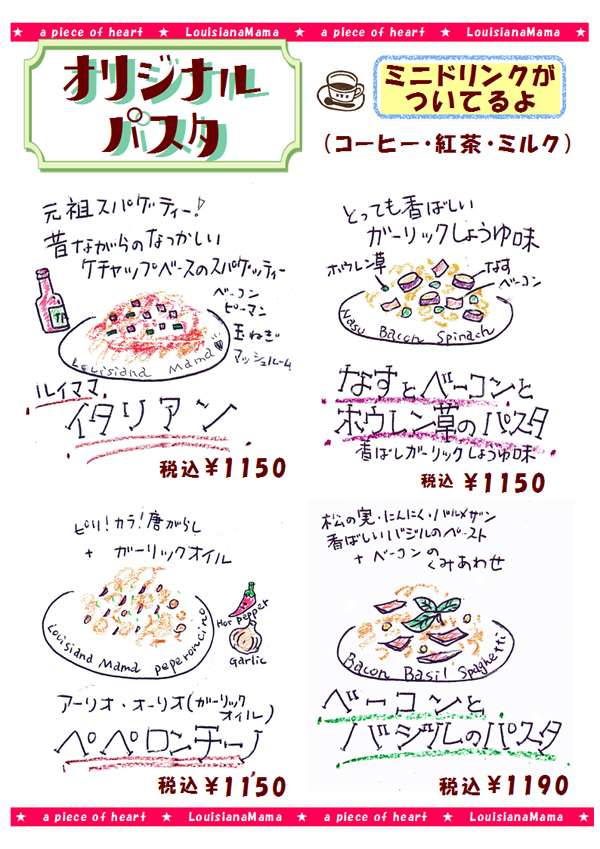 ★ a piece of heart ★ LouisianaMama ★ a piece of heart ★ LouisianaMama ★
オリジナル
パスタ
ミニドリンクが
ついてるよ
(コーヒー・紅茶・ミルク)
元祖スパゲッティー!
昔ながらのなつかしい
ケチャップベースのスパゲッティー
ベーコン
ピーマン
玉ねぎ
マッシュルーム
Louisiana Mama
ルイママ
イタリアン
税込¥1150
とっても香ばしい
ガーリックしょうゆ味
ホウレン草
なす
ベーコン
Nasu Bacon Spinach
なすとベーコンと
ホウレン草のパスタ
香ばしガーリックしょうゆ味
税込¥1150
ピリ!カラ!唐がらし
+ ガーリックオイル
Hot pepper
Garlic
Louisiana Mama peperoncino
アーリオ・オーリオ(ガーリック
オイル)
ペペロンチーノ
税込¥1150
松の実・にんにく・パルメザン
香ばしいバジルのペースト
+ ベーコンの
くみあわせ
Bacon Basil Spaghetti
ベーコンと
バジルのパスタ
税込¥1190
★ a piece of heart ★ LouisianaMama ★ a piece of heart ★ LouisianaMama ★